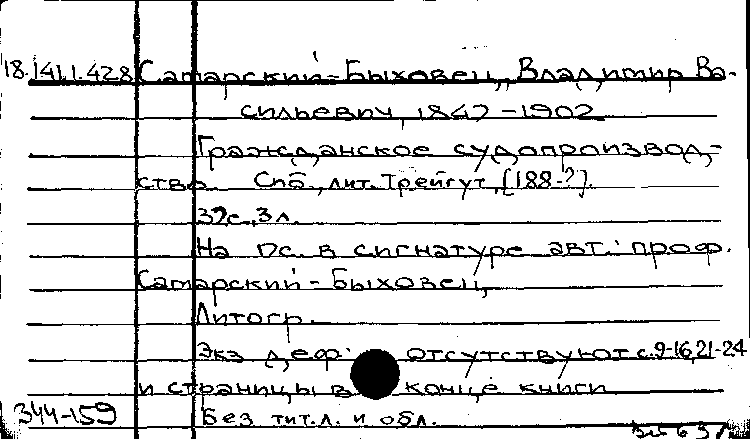 18.141.1.428 Самарский-Быховец, Владимир Ва-
сильевич, 1847-1902
Гражданское судопроизвод-
ство. Спб., лит. Трейгут, [188-?].
39с., 3л.
На 1с. в сигнатуре авт.: проф.
Самарский-Быховец,
Литогр.
Экз деф.: отсутствуют с.9-16, 21-24
и страницы в конце книги
344-159 Без тит.л. и обл.